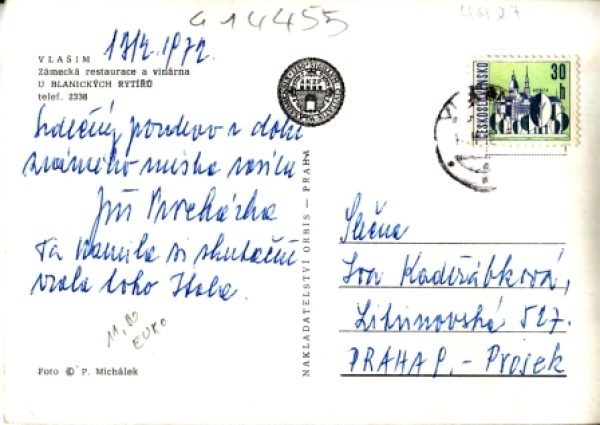 414455
4527
13/2.1972.
VLAŠIM
Zámecká restaurace a vinárna
U BLANICKÝCH RYTÍŘŮ
telef. 2338
Srdečný pozdrav z dobře
známého místa zasílá
Jiří Procházka
Ta Kamila si skutečně
vzala toho Itala.
11,80
EURO
Foto © P. Michálek
NAKLADATELSTVÍ ORBIS — PRAHA
ČESKOSLOVENSKO
30
h
Slečna
Iva Kadeřábková,
Litvínovská 527.
PRAHA 9. - Prosek